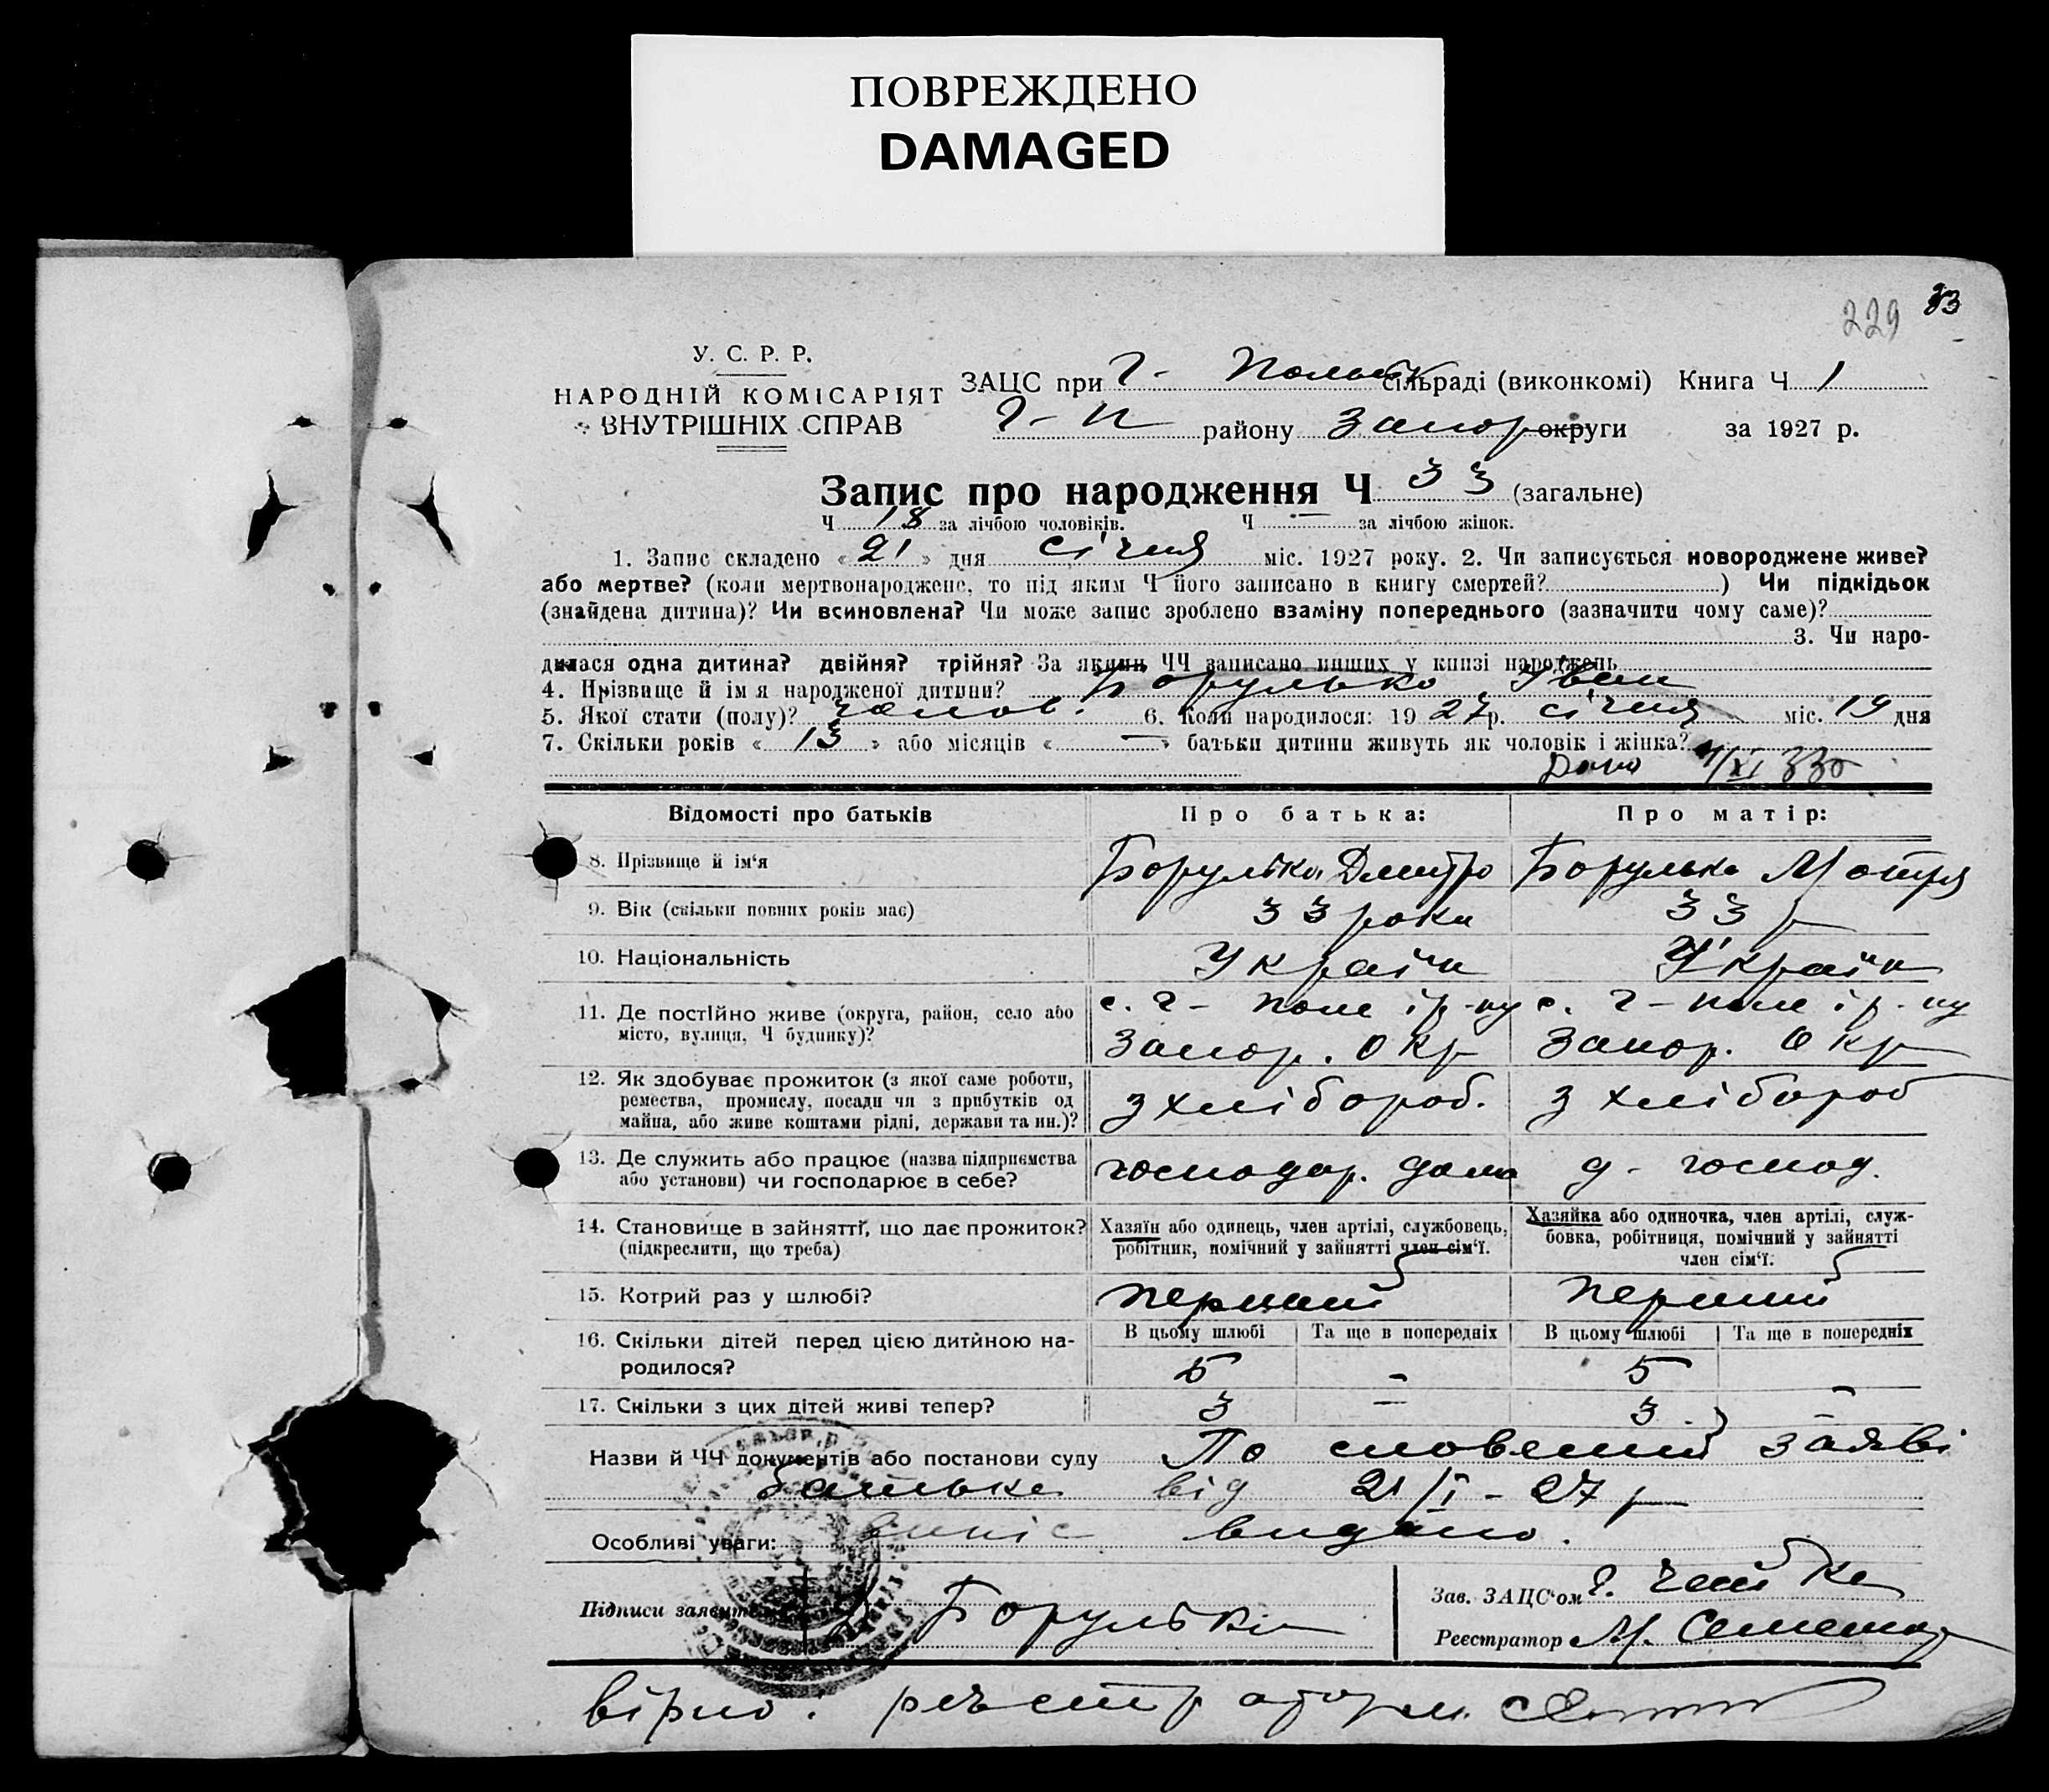 ПОВРЕЖДЕНО
DAMAGED
229 33
У. С. Р. Р.
НАРОДНІЙ КОМІСАРІЯТ
ВНУТРІШНІХ СПРАВ
ЗАЦС при Г- Польськ сільраді (виконкомі) Книга Ч 1
Г-П району Запор округи за 1927 р.
Запис про народження Ч 33 (загальне)
Ч 18 за лічбою чоловіків. Ч — за лічбою жінок.
1. Запис складено « 21 » дня січня міс. 1927 року. 2. Чи записується новороджене живе?
або мертве? (коли мертвонароджене, то під яким Ч його записано в книгу смертей? ) Чи підкідьок
(знайдена дитина)? Чи всиновлена? Чи може запис зроблено взаміну попереднього (зазначити чому саме)?
3. Чи наро-
дилася одна дитина? двійня? трійня? За якими ЧЧ записано инших у книзі народжень
4. Прізвище й ім я народженої дитини? Борулько Іван
5. Якої стати (полу)? чолов. 6. Коли народилося: 19 27 р. січня міс. 19 дня
7. Скільки років « 13 » або місяців « — » батьки дитини живуть як чоловік і жінка?
Відомості про батьків Про батька: Про матір:
8. Прізвище й ім'я Борулько Дмитро Борулько Мотря
9. Вік (скільки повних років має) 33 роки 33 р
10. Національність Україн Україн
11. Де постійно живе (округа, район, село або місто, вулиця, Ч будинку)? с. Г- Поле і р-ну Запор. Окр с. Г- Поле і р-ну Запор. Окр
12. Як здобуває прожиток (з якої саме роботи, ремества, промислу, посади чи з прибутків од майна, або живе коштами рідні, держави та ин.)? з хлібороб. з хлібороб
13. Де служить або працює (назва підприємства або установи) чи господарює в себе? господар. дома д- господ.
14. Становище в зайнятті, що дає прожиток? (підкреслити, що треба) Хазяїн або одинець, член артілі, службовець, робітник, помічний у зайнятті член сім'ї. Хазяйка або одиночка, член артілі, служ-бовка, робітниця, помічний у зайнятті член сім'ї.
15. Котрий раз у шлюбі? перший перший
16. Скільки дітей перед цією дитиною на-родилося? В цьому шлюбі Та ще в попередніх В цьому шлюбі Та ще в попередніх
5 - 5
17. Скільки з цих дітей живі тепер? 3 — 3 —
Назви й ЧЧ документів або постанови суду По словесній заяві
батька від 21/I - 27 р
Особливі уваги: випіс видано.
Підписи заявите Борулько
Зав. ЗАЦС'ом
Реєстратор М. Семеню
вірно: реєстратор